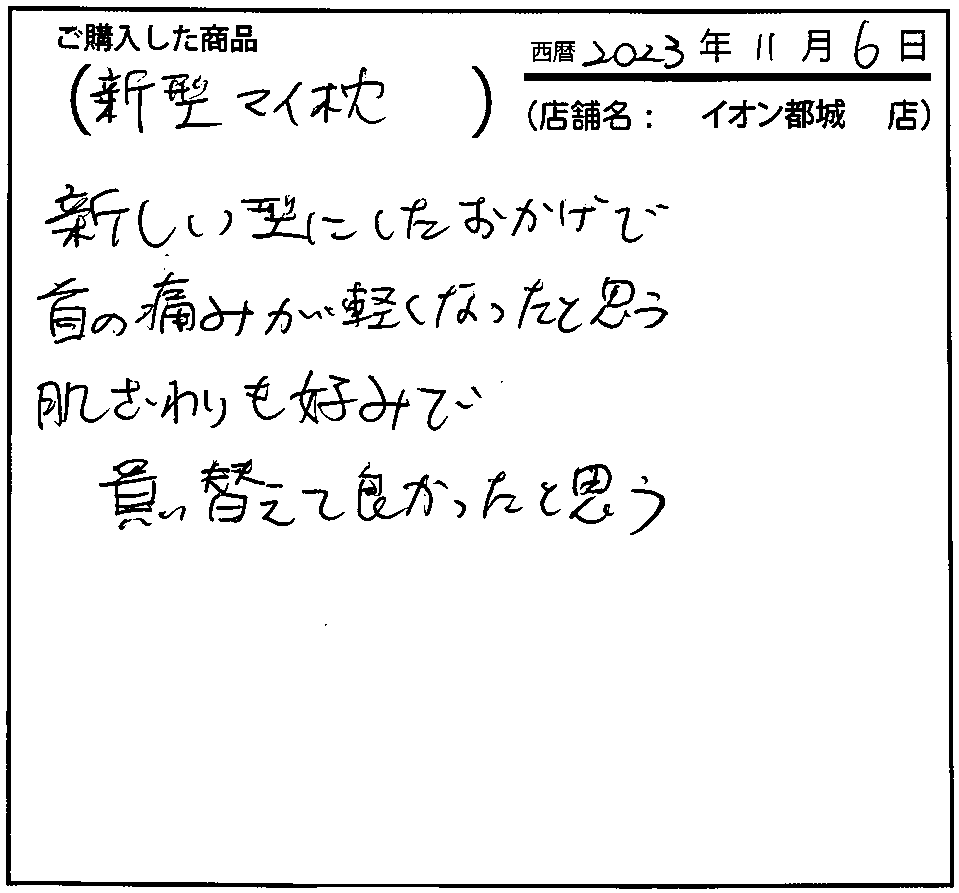 ご購入した商品
西暦 2023 年 11 月 6 日
(新型マイ枕)
(店舗名： イオン都城 店)
新しい型にしたおかげで
首の痛みが軽くなったと思う
肌ざわりも好みで
買い替えて良かったと思う